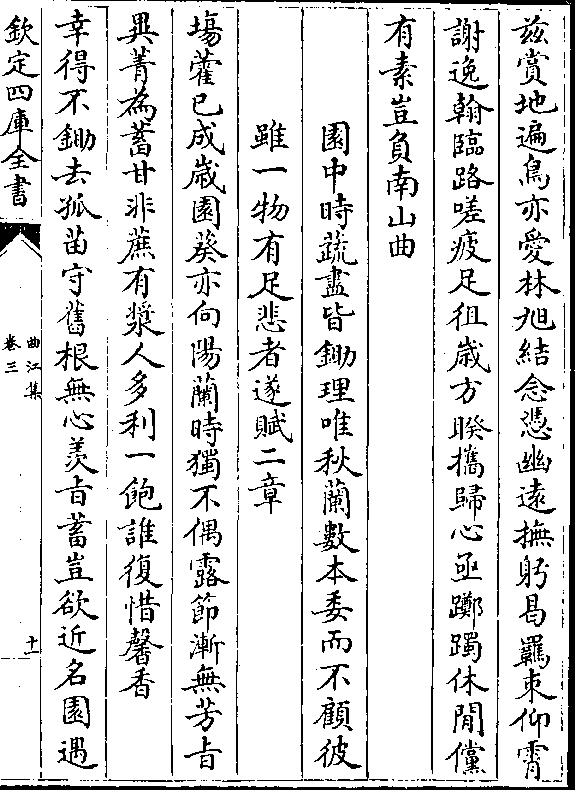 兹賞地遍鳥亦愛林旭結念憑幽遠撫躬曷羈束仰霄
謝逸翰臨路嗟疲足徂歲方暌攜歸心亟躑躅休閒儻
有素豈負南山曲
園中時蔬盡皆鋤理唯秋蘭數本委而不顧彼
雖一物有足悲者遂賦二章
場藿已成歲園葵亦向陽蘭時獨不偶露節漸無芳旨
異菁為蓄甘非蔗有漿人多利一飽誰復惜馨香
幸得不鋤去孤苗守舊根無心羡旨蓄豈欲近名園遇
欽定四庫全書
曲江集
卷三
十一